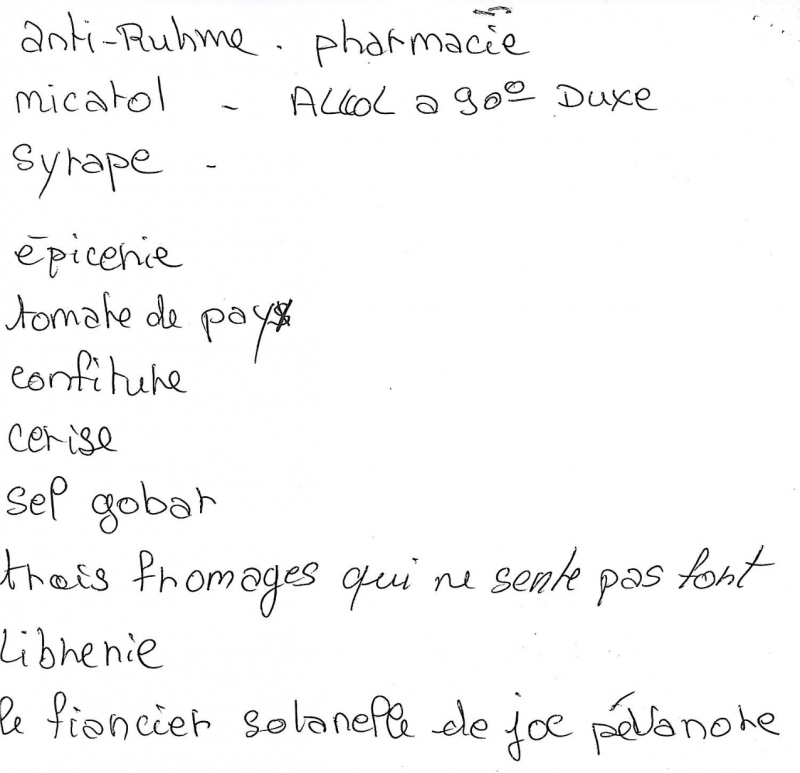 anti-Ruhme. pharmacie
micatol - ALLCOL a 90° Duxe
Syrape -
épicerie
tomate de pays
confiture
cerise
sel gobar
trois fromages qui ne sente pas fort
Librerie
le fiancier solanelle de joe pévanore